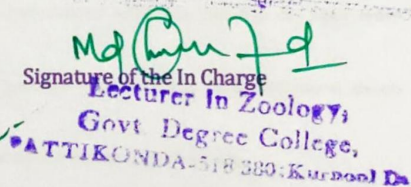 Md
Signature of the In Charge
Lecturer In Zoology,
Govt Degree College,
PATTIKONDA-518 380: Kurnool